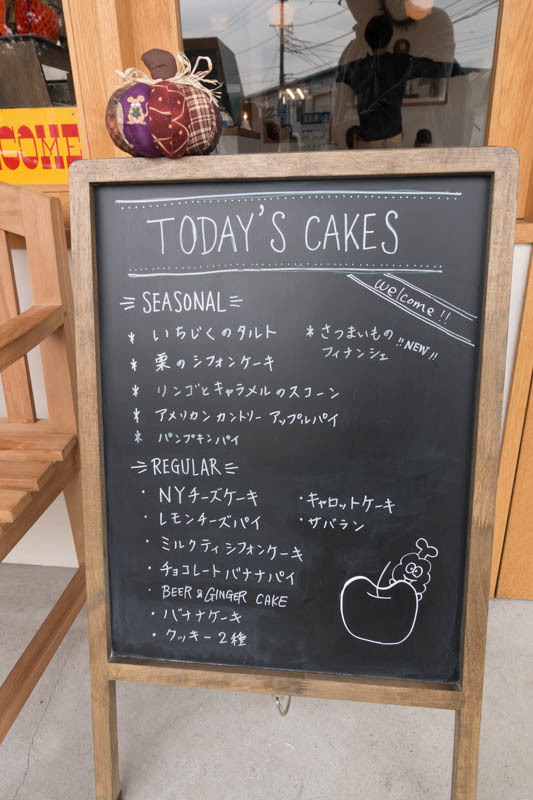 COME
TODAY'S CAKES
welcome!!
SEASONAL
* いちじくのタルト
* 栗のシフォンケーキ
* リンゴとキャラメルのスコーン
* アメリカンカントリーアップルパイ
* パンプキンパイ
* さつまいもの
フィナンシェ !!NEW!!
REGULAR
・NYチーズケーキ
・レモンチーズパイ
・ミルクティシフォンケーキ
・チョコレートバナナパイ
・BEER & GINGER CAKE
・バナナケーキ
・クッキー2種
・キャロットケーキ
・サバラン